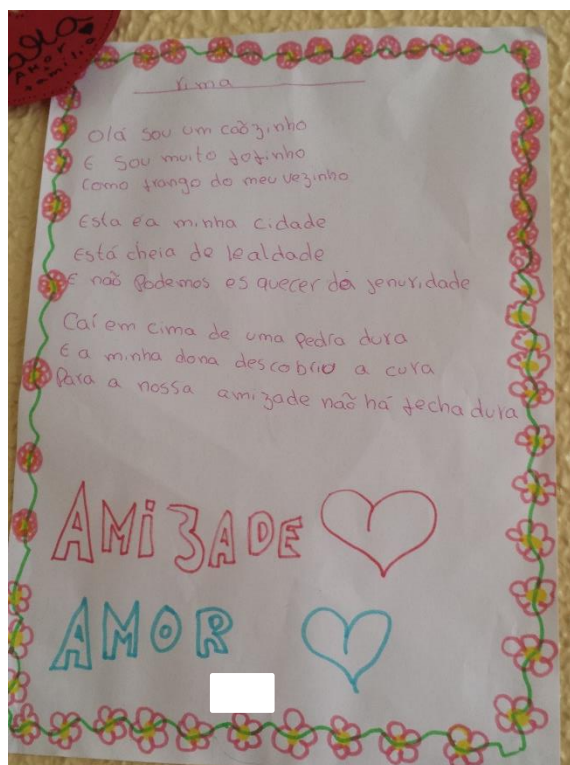 AMOR
rima
Olá sou um caõzinho
E sou muito fofinho
Como frango do meu vezinho
Esta éa minha cidade
Está cheia de lealdade
E não Podemos es quecer da jenuridade
Caí em cima de uma Pedra dura
E a minha dona descobriu a cura
Para a nossa amizade não há fechadura
AMIZADE
AMOR